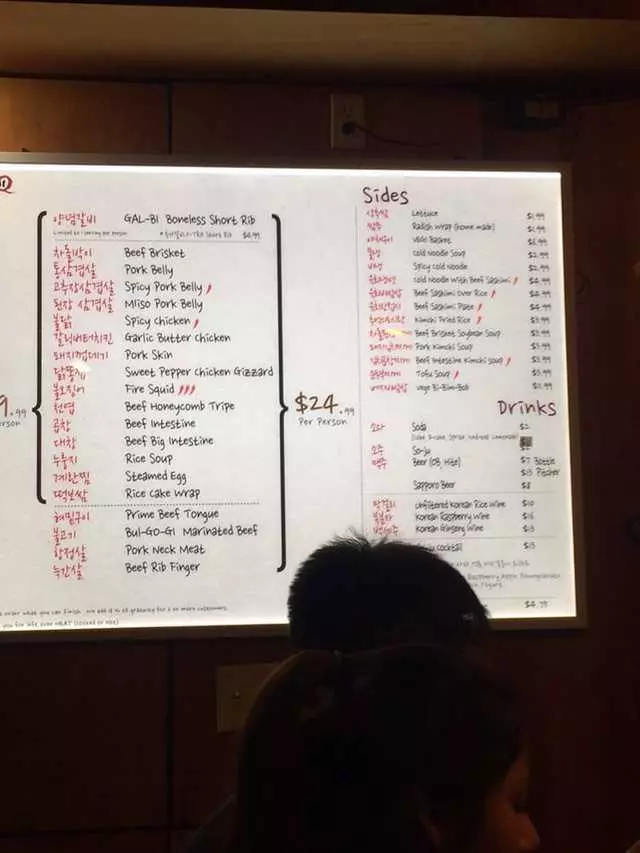 양념갈비 GAL-BI Boneless Short Rib
Limited to 1 serving per person
$6.99
차돌박이 Beef Brisket
통삼겹살 Pork Belly
고추장삼겹살 Spicy Pork Belly
된장 삼겹살 Miso Pork Belly
불닭 Spicy Chicken
갈릭버터치킨 Garlic Butter Chicken
돼지껍데기 Pork Skin
닭똥집 Sweet Pepper Chicken Gizzard
불오징어 Fire Squid
천엽 Beef Honeycomb Tripe
곱창 Beef Intestine
대창 Beef Big Intestine
누룽지 Rice Soup
계란찜 Steamed Egg
떡보쌈 Rice Cake Wrap
혀밑구이 Prime Beef Tongue
불고기 BUL-GO-GI Marinated Beef
항정살 Pork Neck Meat
늑간살 Beef Rib Finger
9.99
erson
$24.99
Per Person
order what you can finish
Sides
Lettuce $1.99
Radish Wrap (home made) $1.99
Basket
Cold Noodle Soup $2.99
Spicy Cold Noodle $2.99
Cold Noodle With Beef Sashimi $4.99
Beef Sashimi Over Rice $4.99
Beef Sashimi Plate $4.99
Kimchi Fried Rice $3.99
Beef Brisket Soybean Soup $3.99
Pork Kimchi Soup $3.99
Beef Intestine Kimchi Soup $3.99
Tofu Soup $3.99
Vege Bi-Bim-Bob
Drinks
소다 Soda $2
소주 So-ju
맥주 Beer (OB, Hite) $7 Bottle
$13 Pitcher
Sapporo Beer $8
막걸리 Unfiltered Korean Rice Wine $10
복분자 Korean Raspberry Wine
백세주 Korean Ginseng Wine $13
Cocktail $13